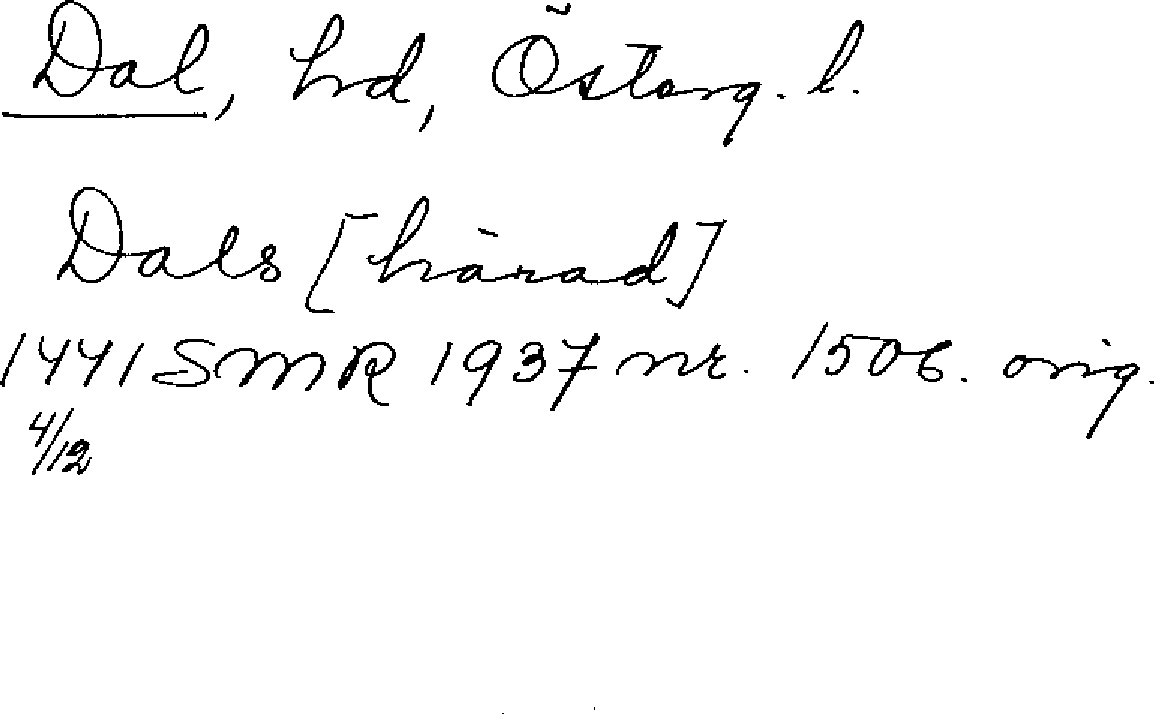 Dal, hd, Österg. l.
Dals [härad]
1441 SMR 1937 nr. 1506. orig.
4/12